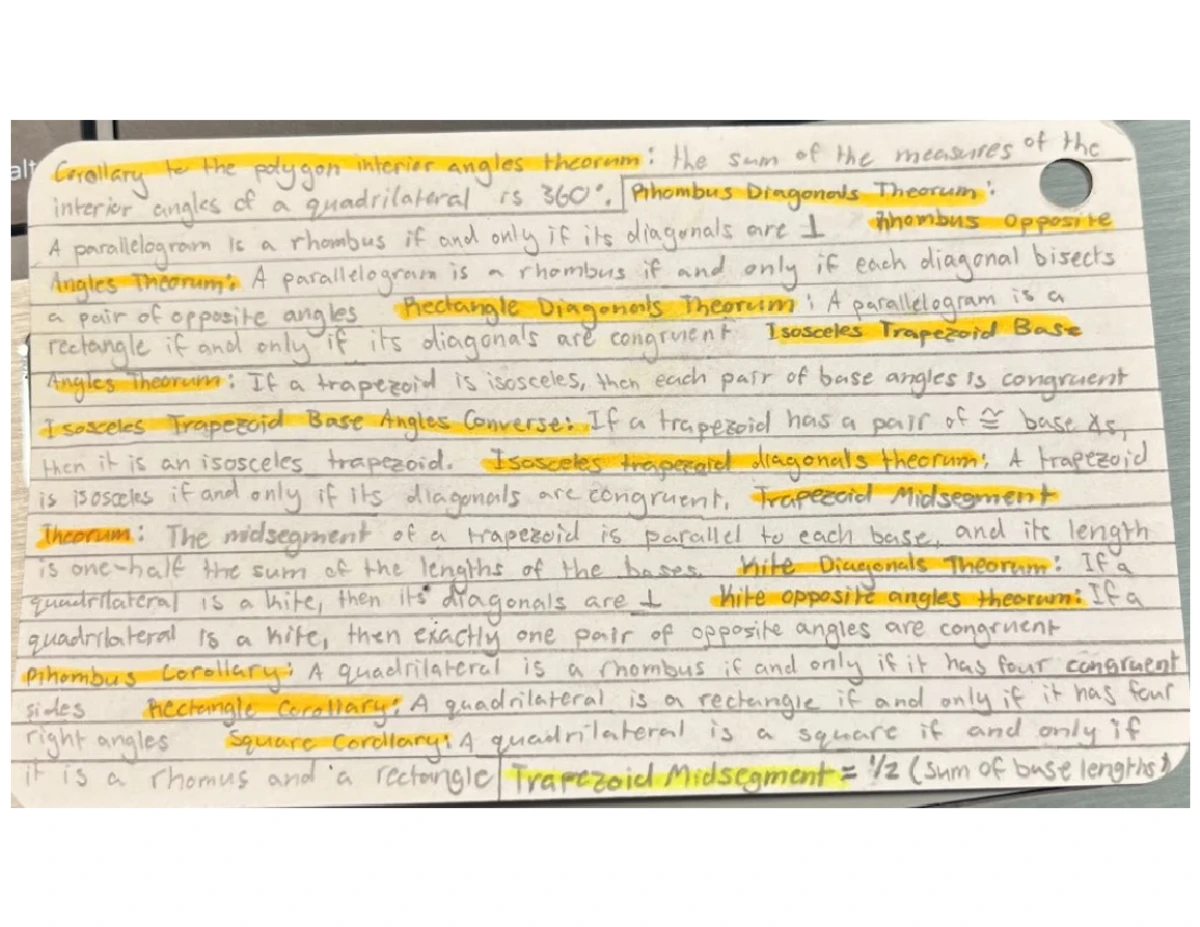 alt
Corollary to the polygon interior angles theorum: the sum of the measures of the
interior angles of a quadrilateral is 360°. Rhombus Diagonals Theorum:
A parallelogram is a rhombus if and only if its diagonals are ⊥ Rhombus Opposite
Angles Theorum: A parallelogram is a rhombus if and only if each diagonal bisects
a pair of opposite angles Rectangle Diagonals Theorum: A parallelogram is a
rectangle if and only if its diagonals are congruent Isosceles Trapezoid Base
Angles Theorum: If a trapezoid is isosceles, then each pair of base angles is congruent
Isosceles Trapezoid Base Angles Converse: If a trapezoid has a pair of ≅ base ∡s,
then it is an isosceles trapezoid. Isosceles trapezoid diagonals theorum: A trapezoid
is isosceles if and only if its diagonals are congruent. Trapezoid Midsegment
Theorum: The midsegment of a trapezoid is parallel to each base, and its length
is one-half the sum of the lengths of the bases. Kite Diagonals Theorum: If a
quadrilateral is a kite, then its diagonals are ⊥ Kite opposite angles theorum: If a
quadrilateral is a kite, then exactly one pair of opposite angles are congruent
Rhombus Corollary: A quadrilateral is a rhombus if and only if it has four congruent
sides Rectangle Corollary: A quadrilateral is a rectangle if and only if it has four
right angles Square Corollary: A quadrilateral is a square if and only if
it is a rhomus and a rectangle Trapezoid Midsegment = 1/2 (sum of base lengths)